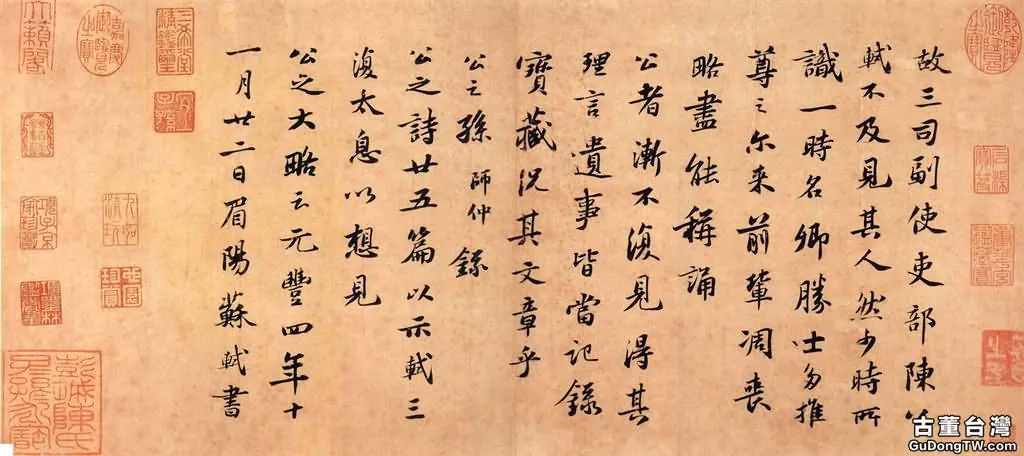 故三司副使吏部陳公
軾不及見其人然少時所
識一時名卿勝士多推
尊之尔来前輩凋喪
略盡能稱誦
公者漸不復見得其
理言遺事皆當記錄
寶藏況其文章乎
公之孫師仲錄
公之詩廿五篇以示軾三
復太息以想見
公之大略云元豐四年十
一月廿二日眉陽蘇軾書
古董台灣
GuDongTW.com